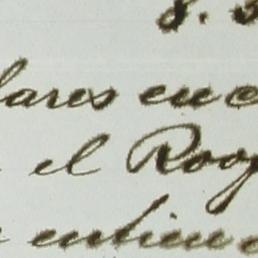 8. s
lares en c
el Roog
entien